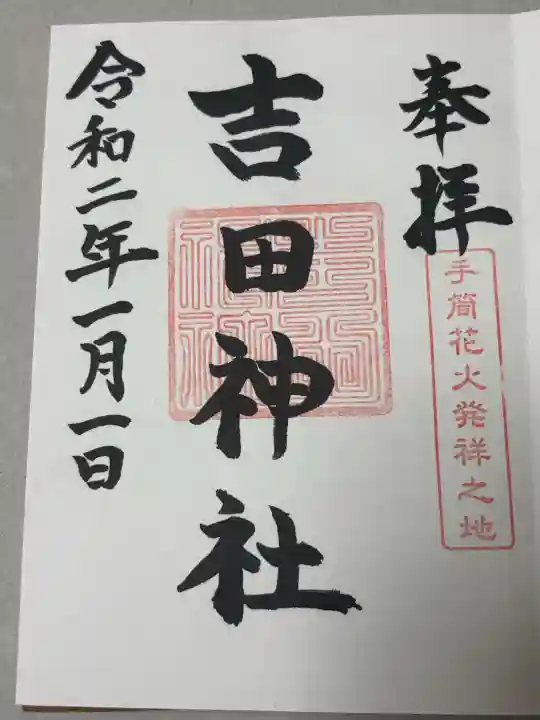 奉拝
手筒花火発祥之地
吉田神社
令和二年一月一日